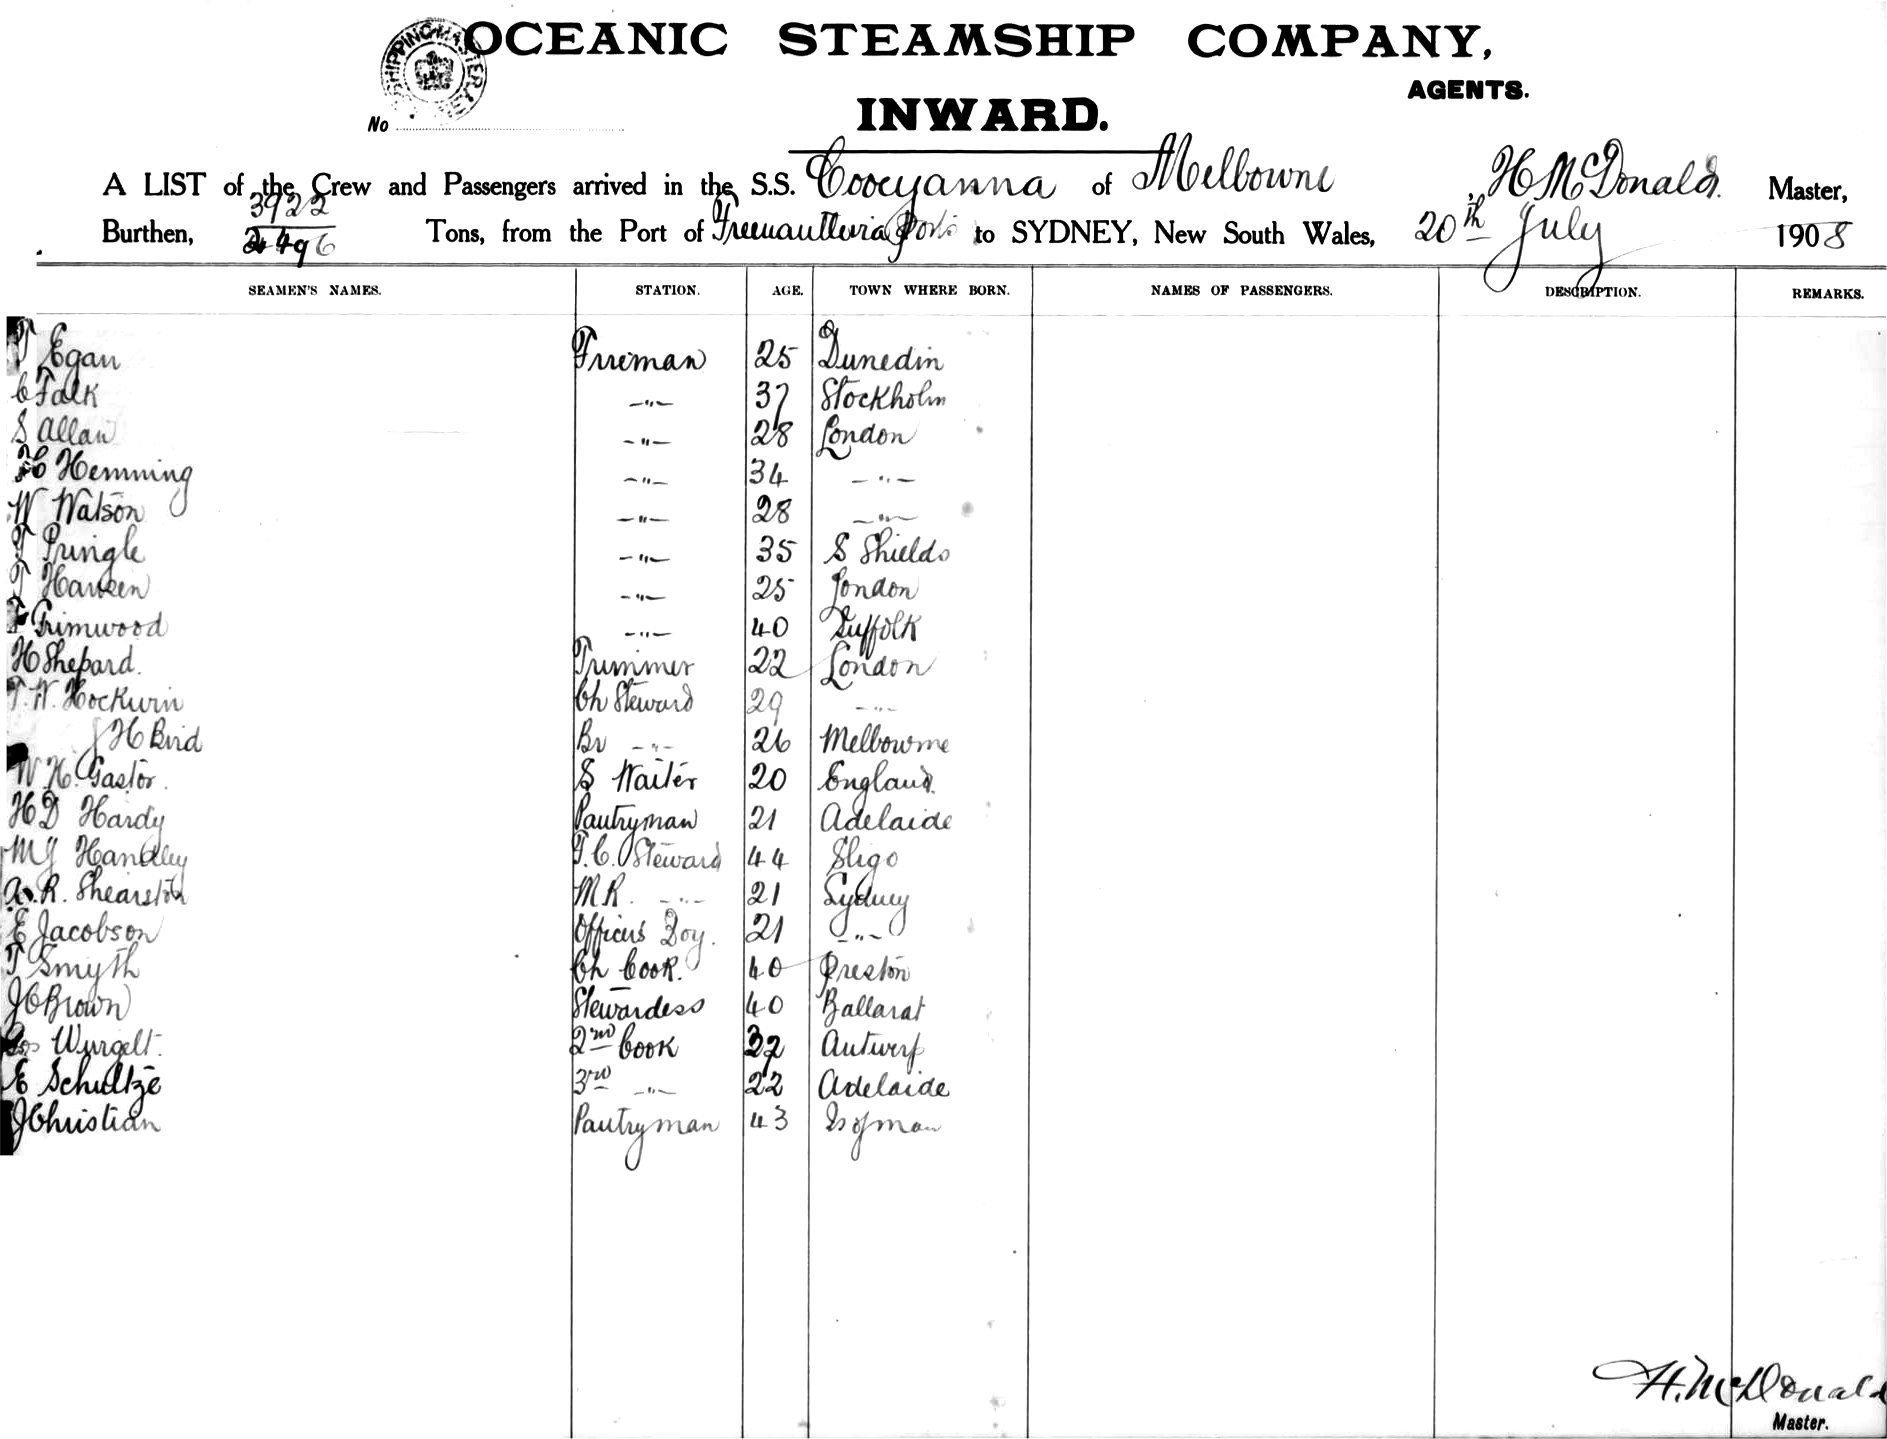 OCEANIC STEAMSHIP COMPANY,
AGENTS.
SHIPPING MASTER
No
INWARD.
A LIST of the Crew and Passengers arrived in the S.S. Cooeyanna of Melbourne, H McDonald. Master,
Burthen, 3922 2496 Tons, from the Port of Freemantle via Ports to SYDNEY, New South Wales, 20th July 1908
SEAMEN'S NAMES. STATION. AGE. TOWN WHERE BORN. NAMES OF PASSENGERS. DESCRIPTION. REMARKS.
T Egan Fireman 25 Dunedin
C Falk —"— 37 Stockholm
S Allan —"— 28 London
H Hemming —"— 34 —"—
W Watson —"— 28 —"—
T Pringle —"— 35 S Shields
T Hansen —"— 25 London
F Grimwood —"— 40 Suffolk
H Shepard. Trimmer 22 London
T. W. Hockwin Ch Steward 29 —"—
J H Bird Br —"— 26 Melbourne
W. H. Gastor. S Waiter 20 England.
H D Hardy Pantryman 21 Adelaide
M J Handley F.C. Steward 44 Sligo
A. R. Shearston M R. —"— 21 Sydney
E Jacobson Officers Boy. 21 —"—
T Smyth Ch Cook. 40 Preston
J C Brown Stewardess 40 Ballarat
Wurgelt. 2nd Cook 32 Antwerp
E Schultze 3rd —"— 22 Adelaide
J Christian Pantryman 43 Is of man
H. McDonald
Master.